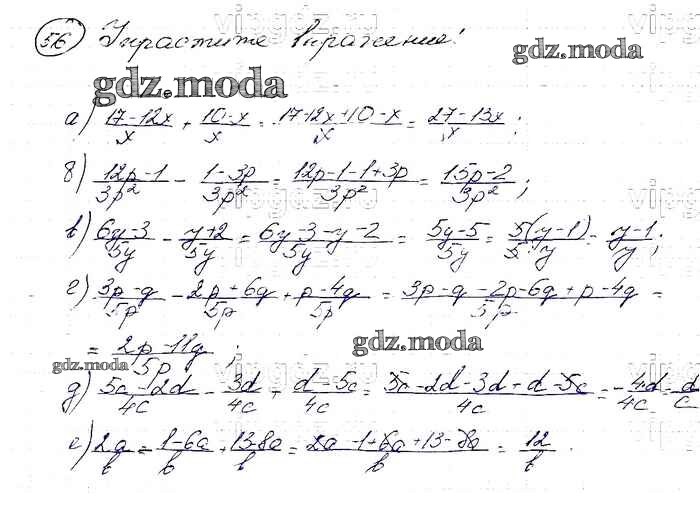 56 Упростите выражение!
gdz.moda
gdz.moda
а) (17-12x)/x + (10-x)/x = (17-12x+10-x)/x = (27-13x)/x ;
б) (12p-1)/3p² - (1-3p)/3p² = (12p-1-1+3p)/3p² = (15p-2)/3p² ;
в) (6y-3)/5y - (y+2)/5y = (6y-3-y-2)/5y = (5y-5)/5y = 5(y-1)/5y = (y-1)/y ;
г) (3p-q)/5p - (2p+6q)/5p + (p-4q)/5p = (3p-q-2p-6q+p-4q)/5p =
= (2p-11q)/5p ;
gdz.moda
gdz.moda
д) (5c-2d)/4c - 3d/4c + (d-5c)/4c = (5c-2d-3d+d-5c)/4c = -4d/4c = -d/c
е) 2a/b - (1-6a)/b + (13-8a)/b = (2a-1+6a+13-8a)/b = 12/b .